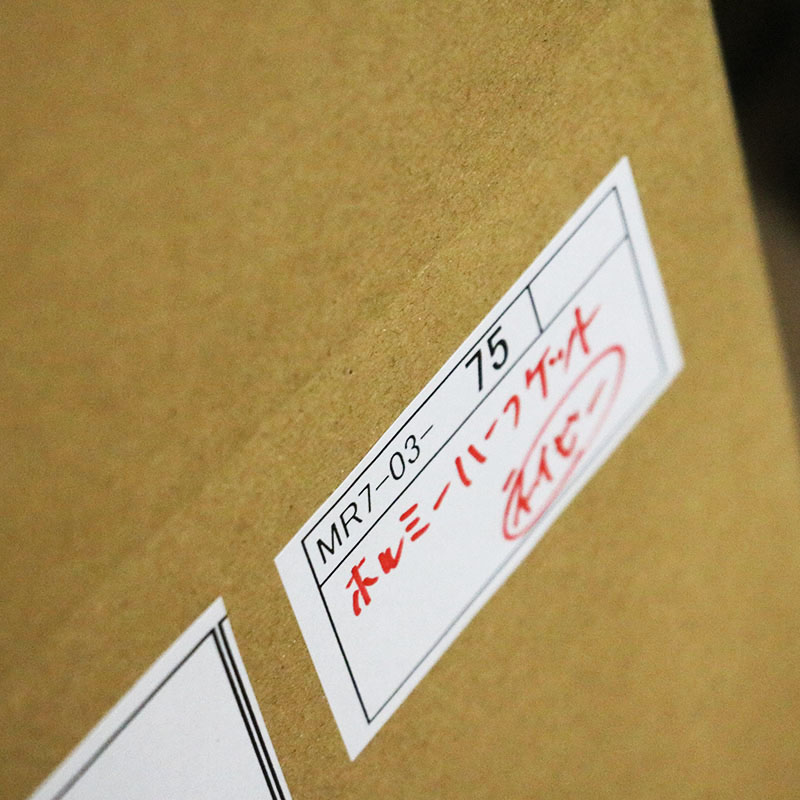 MR7-03- 75
ホルミーハーフケット
ネイビー